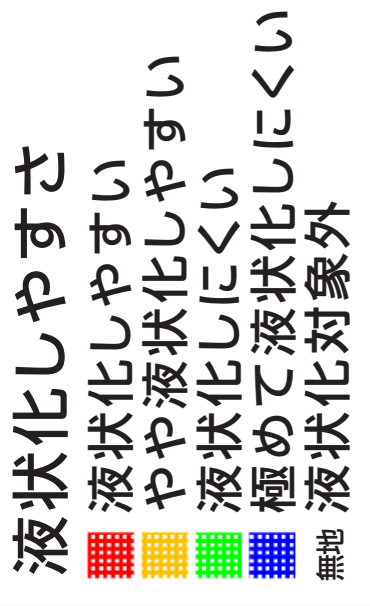 液状化しやすさ
液状化しやすい
やや液状化しやすい
液状化しにくい
極めて液状化しにくい
無地 液状化対象外